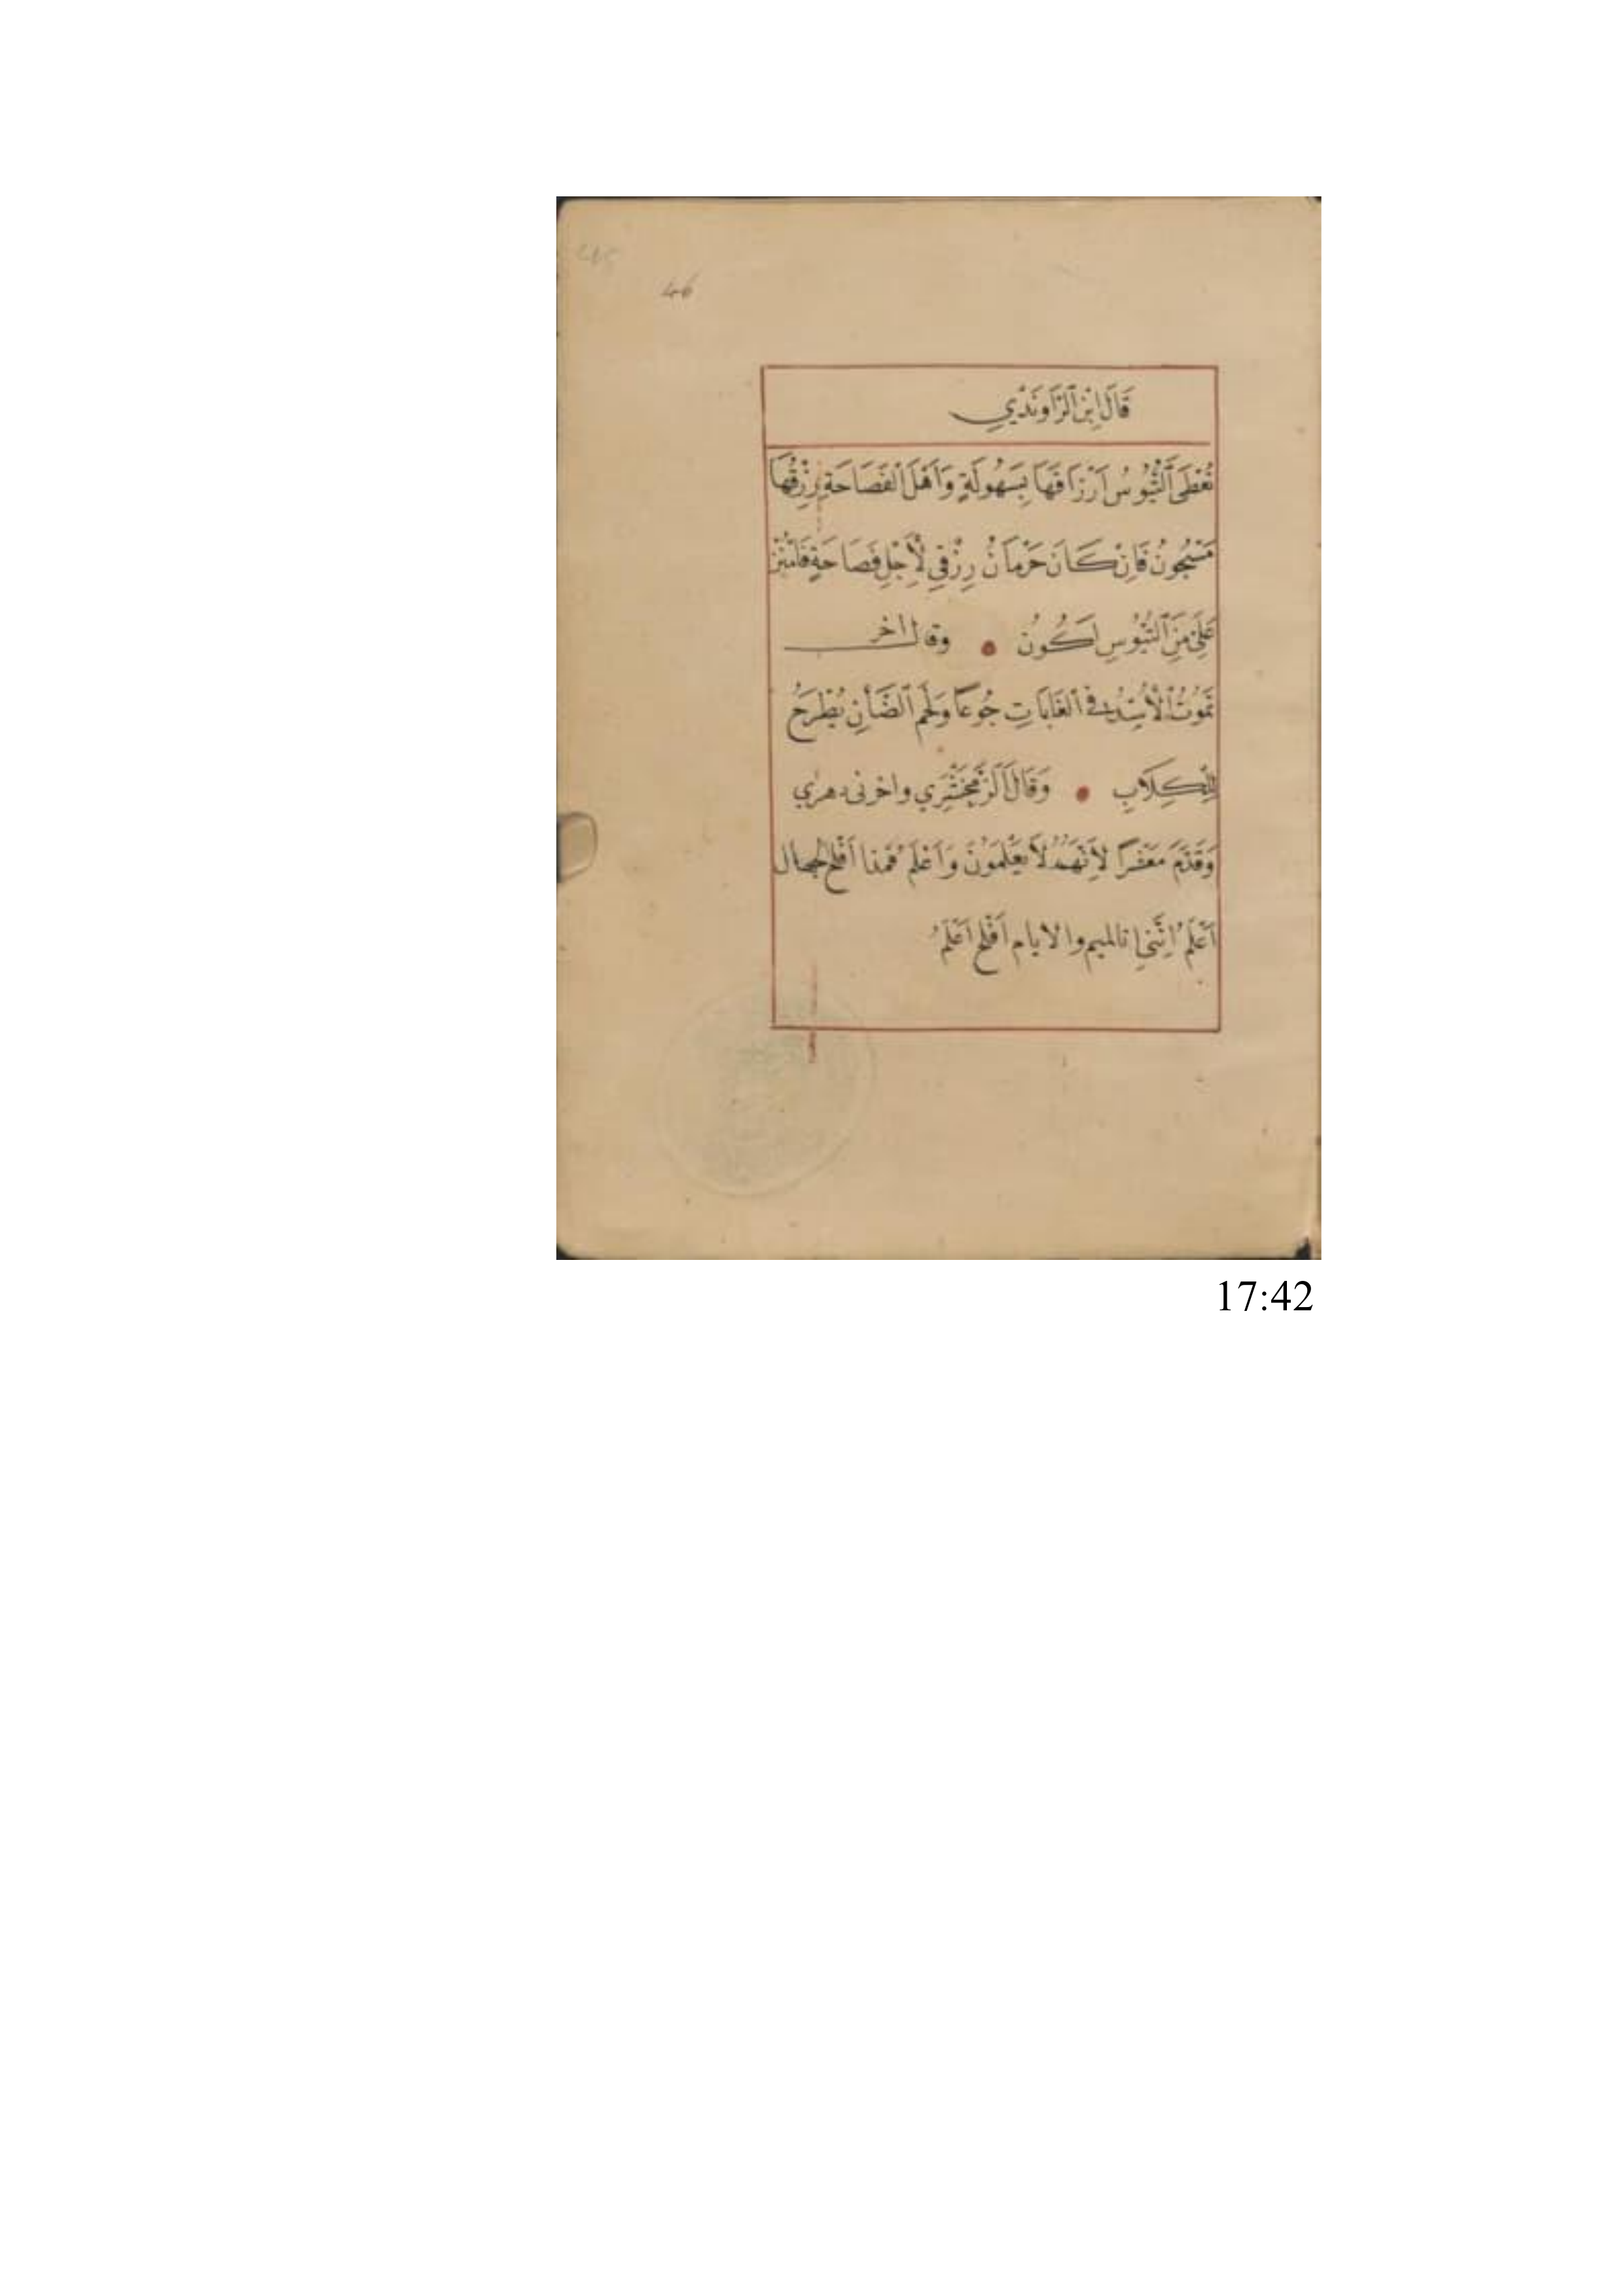 46
قَالَ ابْنُ الرَّاوَنْدِي
تُعْطَى التُّيُوسُ اَرْزَاقَهَا بِسَهُولَةٍ وَاَهْلَ الْفَصَاحَةِ رِزْقُهَا
مَسْجُونُ فَاِنْ كَانَ حَرْمَانْ رِزْقِي لِأَجْلِ فَصَاحَةٍ فَامْنُنْ
عَلَيَّ مِنَ التُّيُوسِ اَكُونُ • وقال اخر
تَمُوتُ الْأُسْدُ فِي الْغَابَاتِ جُوعًا وَلَحْمُ الضَّأْنِ يُطْرَحُ
لِلْكِلَابِ • وَقَالَ الزَّمَخْشَرِي واخرنى دهري
وَقَدَّمَ مَعْشَرًا لِأَنَّهُمْ لَا يَعْلَمُونَ وَاَعْلَمُ فمذا اَفْلَحَ الجهال
اَعْلَمُ اِنَّنِي انا لميم والايام اَفْلَح اَعْلَمُ
17:42